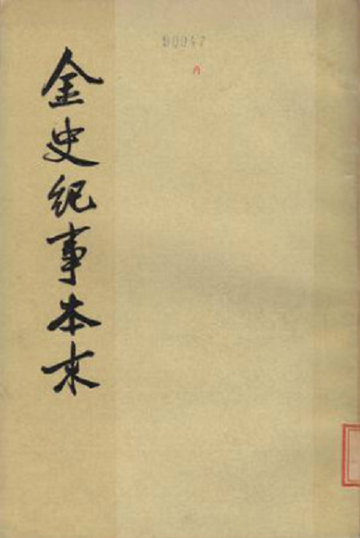 金史紀事本末
90947